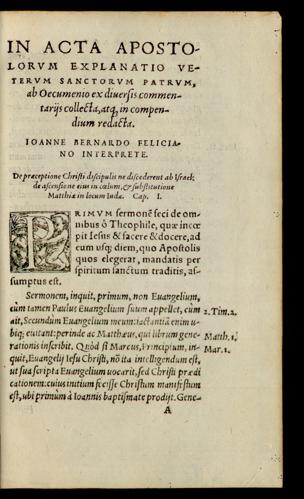 IN ACTA APOSTO-
LORVM EXPLANATIO VE-
TERVM SANCTORVM PATRVM,
ab Oecumenio ex diuersis commen-
tarijs collecta, atq; in compen-
dium redacta.
IOANNE BERNARDO FELICIA-
NO INTERPRETE.
De præceptione Christi discipulis ne discederent ab Israel;
de ascensione eius in cœlum, & substitutione
Matthiæ in locum Iudæ. Cap. I.
PRIMVM sermonē feci de om-
nibus ô Theophile, quæ incœ
pit Iesus & facere & docere, ad
eum usq; diem, quo Apostolis
quos elegerat, mandatis per
spiritum sanctum traditis, as-
sumptus est.
Sermonem, inquit, primum, non Euangelium,
cùm tamen Paulus Euangelium suum appellet, cùm 2. Tim. 2.
ait, Secundùm Euangelium meum: iactantiā enim u-
biq; euitant: perinde ac Matthæus, qui librum gene-
rationis inscribit. Quòd si Marcus, Principium, in- Matth. 1.
quit, Euangelij Iesu Christi, nō ita intelligendum est, Mar. 1.
ut sua scripta Euangelium uocarit, sed Christi prædi
cationem: cuius initium fecisse Christum manifestum
est, ubi primùm à Ioannis baptismate prodijt. Gene-
A